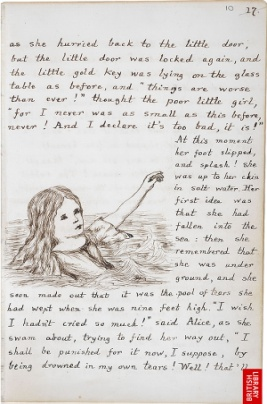 10 27.
as she hurried back to the little door,
but the little door was locked again, and
the little gold key was lying on the glass
table as before, and "things are worse
than ever!" thought the poor little girl,
"for I never was as small as this before,
never! And I declare it's too bad, it is!"
At this moment
her foot slipped,
and splash! she
was up to her chin
in salt water. Her
first idea was
that she had
fallen into the
sea: then she
remembered that
she was under
ground, and she
soon made out that it was the pool of tears she
had wept when she was nine feet high. "I wish
I hadn't cried so much!" said Alice, as she
swam about, trying to find her way out, "I
shall be punished for it now, I suppose, by
being drowned in my own tears! Well! that'll
BRITISH
LIBRARY